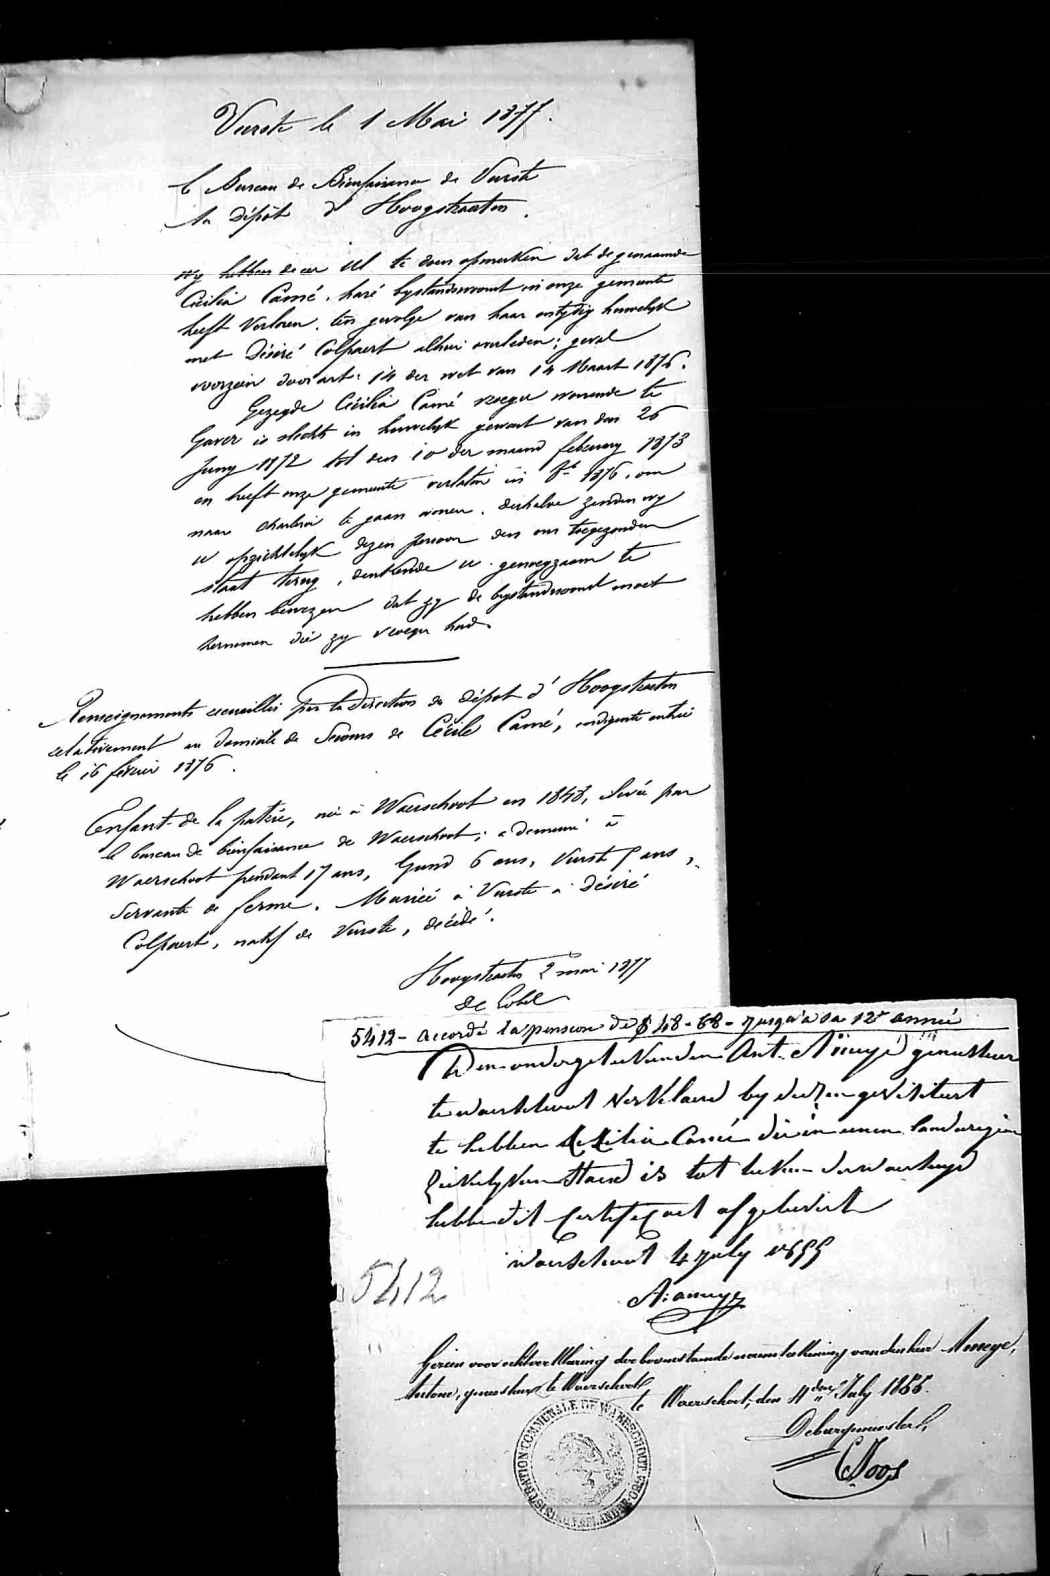 Vurste le 1 Mai 1877.
Le Bureau de Bienfaisance de Vurste
au Dépôt d'Hoogstraeten.
wy hebben de eer Ul te doen opmerken dat de genaamde
Cecilia Camé, haré bystandswoonst in onze gemeente
heeft verloren, ten gevolge van haar huwelyk
met Désiré Colpaert alhier overleden; geval
voorzien door art: 14 der wet van 14 Maart 1876.
Gezegde Cécilia Camé vroeger wonende te
Gaver is slechts in huwelyk geweest van den 26
Juny 1872 tot den 10 der maand february 1873
en heeft onze gemeente verlaten in 1876, om
naar Charleroi te gaan wonen. derhalve zenden wy
u opzichtelyk dezen persoon den ons toegezonden
staat terug, denkende u genoegzaam te
hebben bewezen dat zy de bystandswoonst moet
hernemen die zy vroeger had.
Renseignements recueillis par la Direction du dépôt d'Hoogstraeten
relativement au domicile de secours de Cécile Camé, indigente entrée
le 16 février 1876.
Enfant de la patrie, née à Waerschoot en 1848, élevée par
le bureau de bienfaisance de Waerschoot; a demeuré à
Waerschoot pendant 17 ans, Gand 6 ans, Vurste 5 ans,
Servante de ferme. Mariée à Vurste à Désiré
Colpaert, natif de Vurste, décédé.
Hoogstraeten 2 mai 1877
De
5412 - accordé la pension de 48-68 - jusqu'à sa 12e année
Den ondergeteekenden Ant. Ameye geneesheer
te waerschoot verklaerd by dezen gevisiteert
te hebben Cecilia Camé die in eenen
ziekelyken staed is tot teeken der waerheyd
hebbe dit Certificaet afgelevert
waerschoot 4 july 1855
A: ameye
5412
Gezien voor echtverklaring der bovenstaende naemteekening van den heer Ameye,
Antone, geneesheer te Waerschoot
te Waerschoot, den 4den July 1855.
De burgemeester,